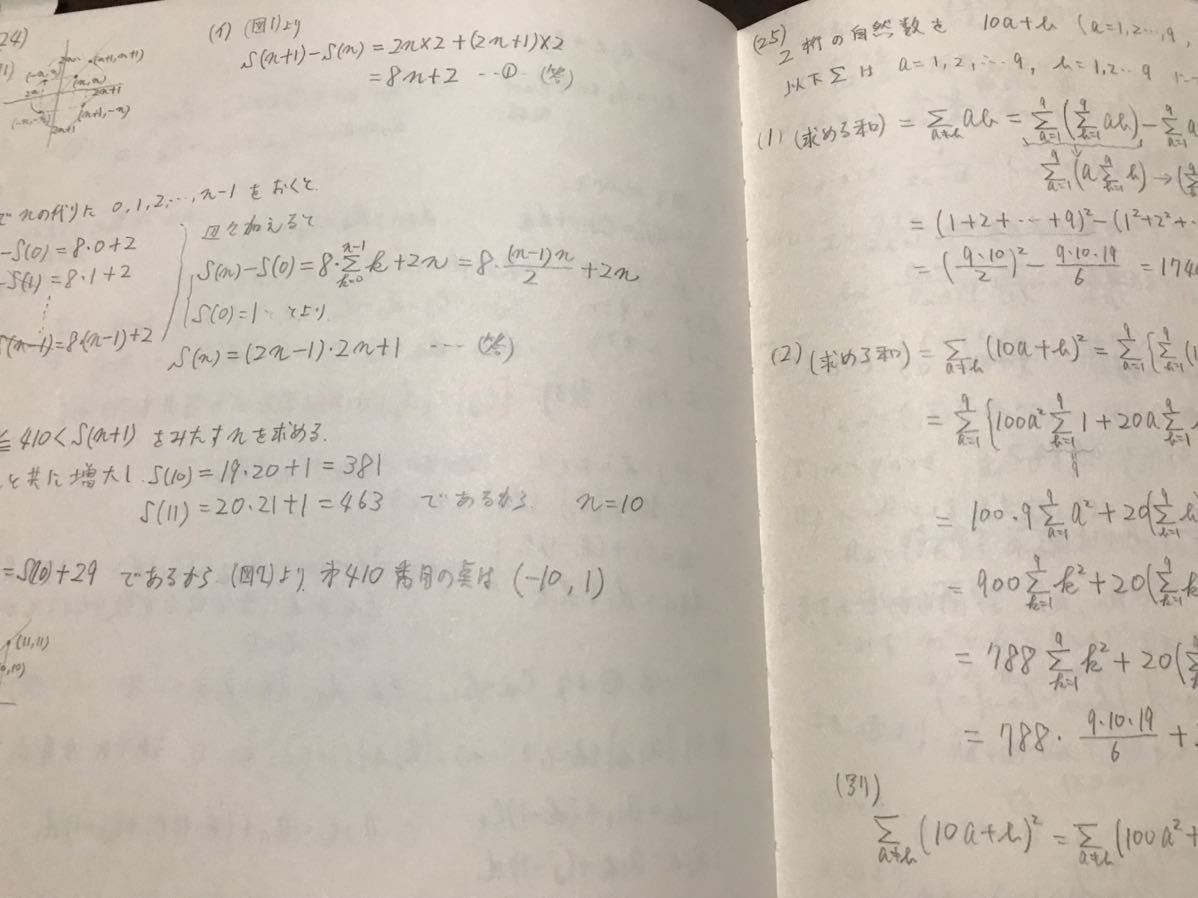 24)
(n+1, n+1)
(n, n)
2n+1
(n+1, -n)
2n+1
(イ) (図1)より
S(n+1)-S(n) = 2n×2+(2n+1)×2
= 8n+2 …① (答)
でnの代りに 0,1,2,…,n-1 をおくと
-S(0)=8・0+2
-S(1)=8・1+2
S(n-1)=8・(n-1)+2
辺々加えると
S(n)-S(0)=8・Σ[k=0→n-1] k+2n=8・(n-1)n/2+2n
S(0)=1 より
S(n)=(2n-1)・2n+1 … (答)
≦410<S(n+1) をみたすnを求める.
と共に増大し S(10)=19・20+1=381
S(11)=20・21+1=463 であるから n=10
+29 であるから (図2)より 才410番目の点は (-10, 1)
(11,11)
(25) 2桁の自然数を 10a+b (a=1,2…,9,
以下Σは a=1,2,…9, b=1,2…9
(1) (求める和) = Σ[a≠b] ab = Σ[a=1→9](Σ[b=1→9] ab) - Σ[a=1→9] a
Σ[a=1→9](aΣ[b=1→9] b) → (
= (1+2+…+9)² - (1²+2²+
= (9・10/2)² - 9・10・19/6 = 174
(2) (求める和) = Σ[a≠b](10a+b)² = Σ[a=1→9]{Σ[b=1→9](1
= Σ[a=1→9]{100a² Σ[b=1→9] 1 + 20a Σ[b=1→9]
9
= 100・9 Σ[a=1→9] a² + 20(Σ[b=1→9] b
= 900 Σ[k=1→9] k² + 20(Σ[k=1→9] k
= 788 Σ[k=1→9] k² + 20(
= 788・9・10・19/6 +
(別)
Σ[a≠b](10a+b)² = Σ[a≠b](100a²+